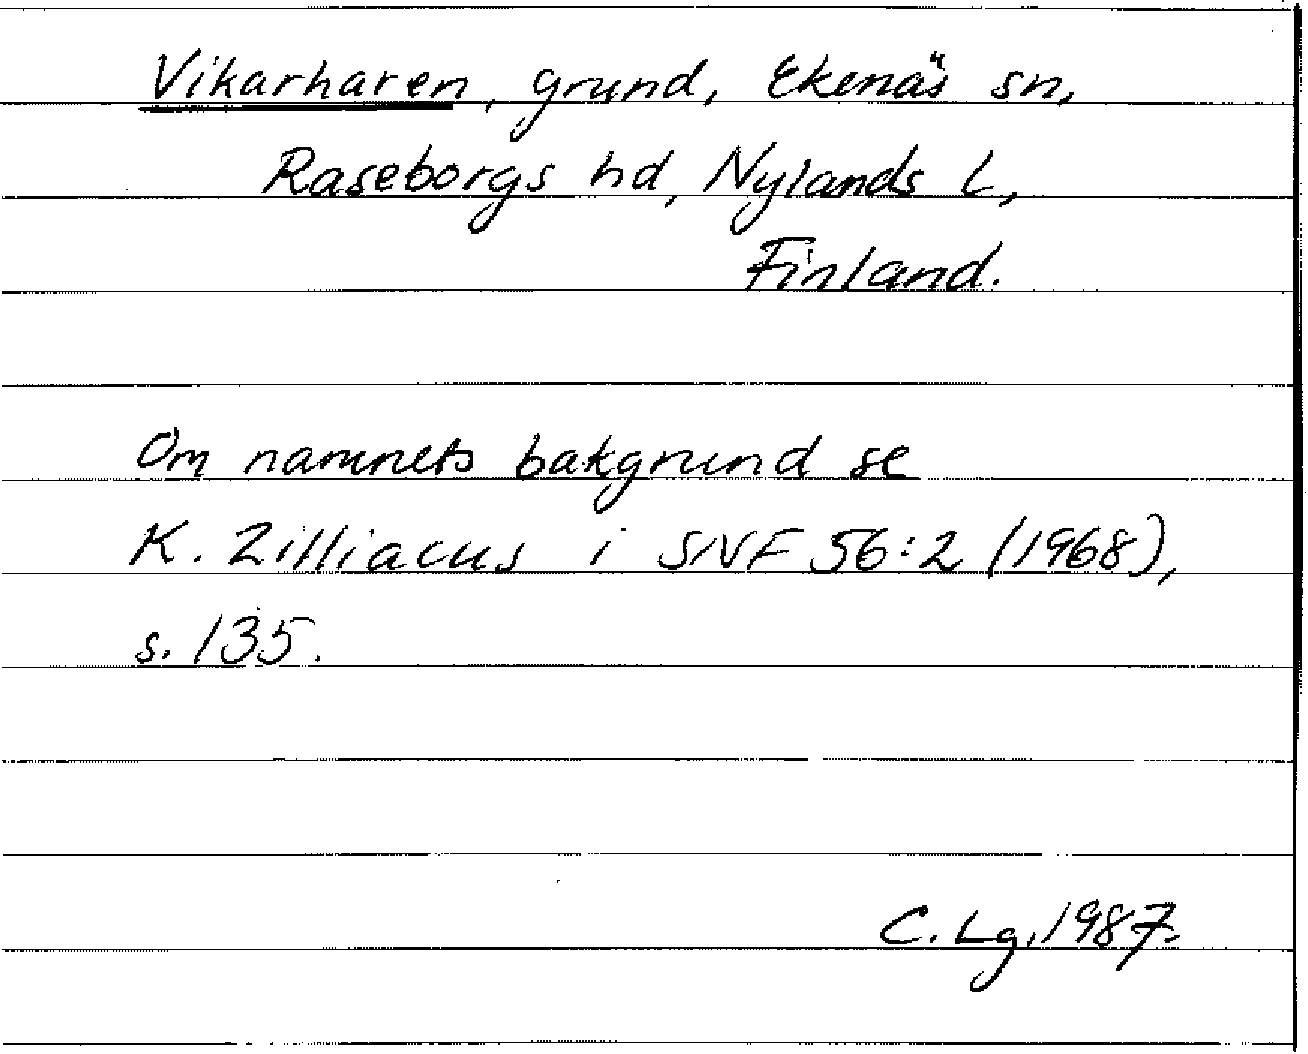 Vikarharen, grund, Ekenäs sn,
Raseborgs hd, Nylands l,
Finland.
Om namnets bakgrund se
K. Zilliacus i SNF 56:2 (1968),
s. 135.
C. Lg. 1987.